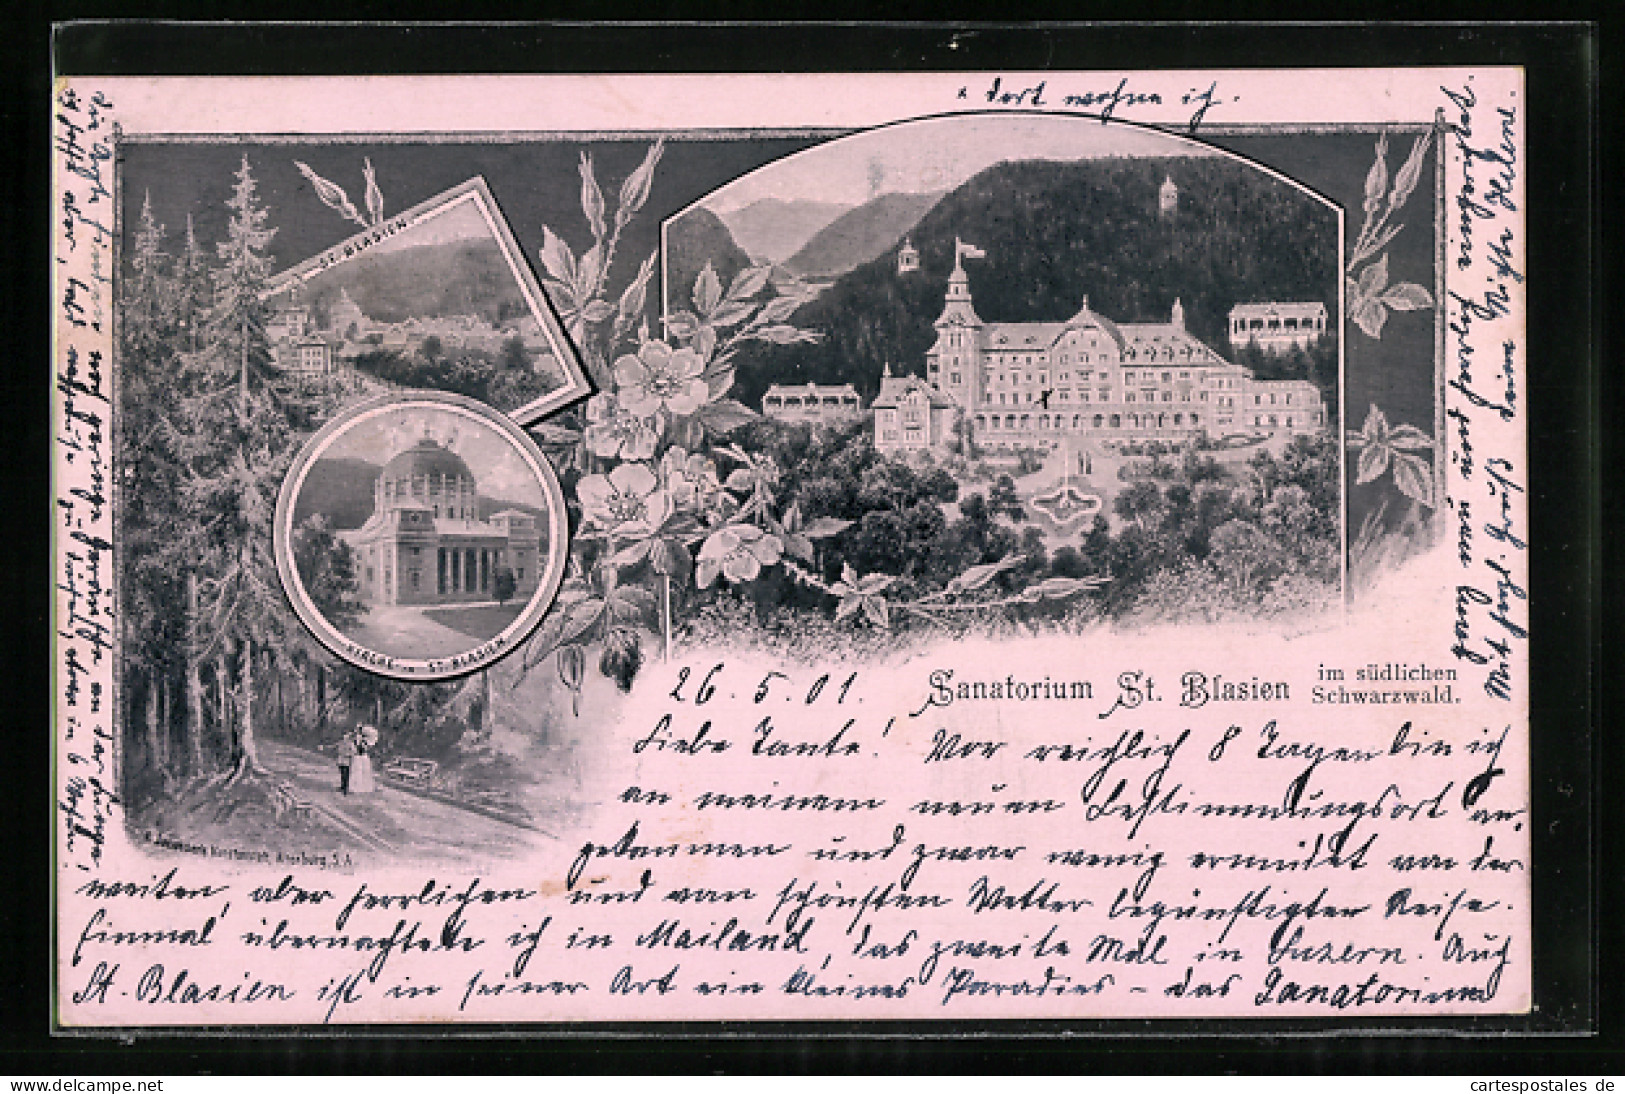 x dort wohne ich.
ST. BLASIEN
KIRCHE IN ST. BLASIEN
Sanatorium St. Blasien im südlichen
Schwarzwald.
Kunstanstalt, Altenburg, S.A.
26. 5. 01.
Liebe Tante! Vor reichlich 8 Tagen bin ich
an meinem neuen Bestimmungsort an,
gekommen und zwar wenig ermüdet von der
weiten, aber herrlichen und vom schönsten Wetter begünstigten Reise.
Einmal übernachtete ich in Mailand, das zweite Mal in Luzern. Auch
St. Blasien ist in seiner Art ein kleines Paradies – das Sanatorium
ganz neu und herrlich eingerichtet.
Mit herzl. Gruß Deine Nichte Helene.